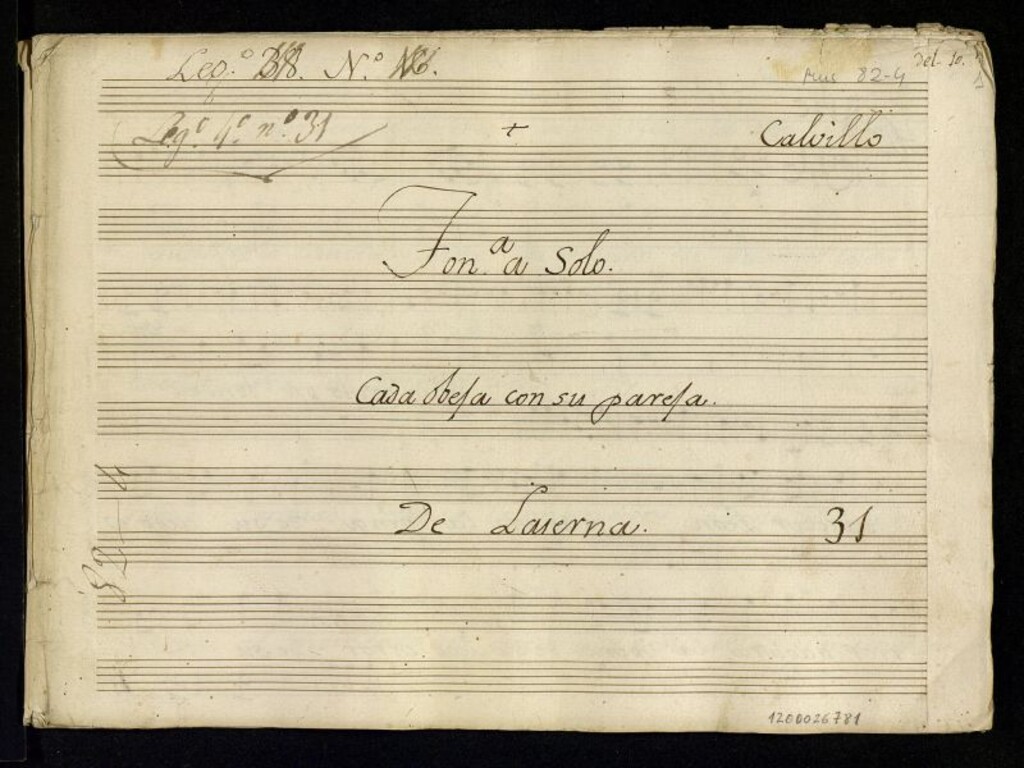 Leg.º N.º
Mus 82-4
del. 10.
Leg.º 4.º n.º 31
+
Calvillo
Ton.ª a Solo.
Cada obeja con su pareja.
De Laserna.
31
82-4
1200026781